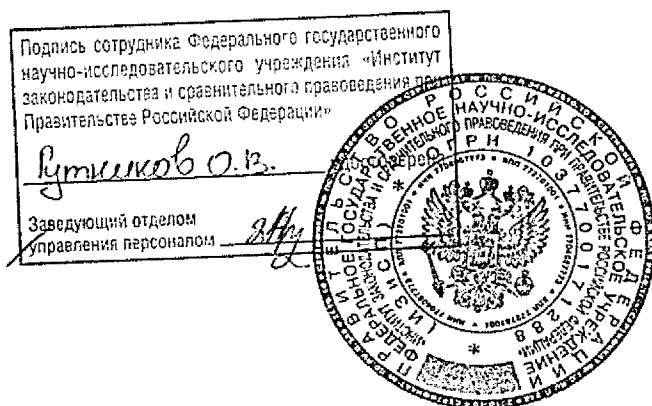 Подпись сотрудника Федерального государственного
научно-исследовательского учреждения «Институт
законодательства и сравнительного правоведения при
Правительстве Российской Федерации»
Гутников О.В.
Заведующий отделом
управления персоналом
ПРАВИТЕЛЬСТВО РОССИЙСКОЙ ФЕДЕРАЦИИ
ФЕДЕРАЛЬНОЕ ГОСУДАРСТВЕННОЕ НАУЧНО-ИССЛЕДОВАТЕЛЬСКОЕ УЧРЕЖДЕНИЕ
«ИНСТИТУТ ЗАКОНОДАТЕЛЬСТВА И СРАВНИТЕЛЬНОГО ПРАВОВЕДЕНИЯ ПРИ ПРАВИТЕЛЬСТВЕ РОССИЙСКОЙ ФЕДЕРАЦИИ»
(ИЗИСП) * ОГРН 1037700171288 *